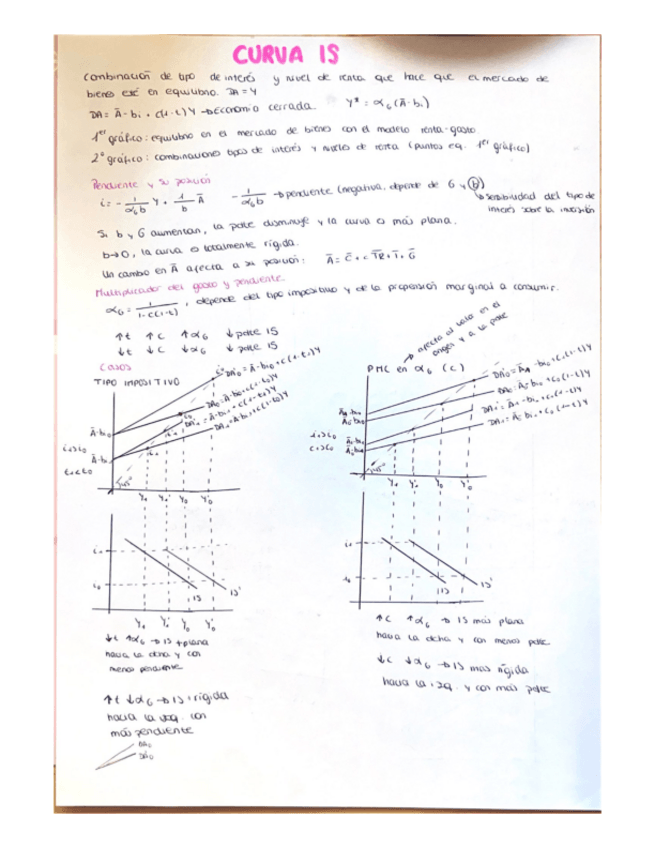 CURVA IS
Combinación de tipo de interés y nivel de renta que hace que el mercado de
bienes esté en equilibrio. DA = Y
DA = Ā - bi + c(1-t)Y → Economía cerrada. Y* = αG (Ā - bi)
1er gráfico: equilibrio en el mercado de bienes con el modelo renta-gasto
2º gráfico: combinaciones tipos de interés y niveles de renta (puntos eq. 1er gráfico)
Pendiente y su posición
i = - 1/αGb Y + 1/b Ā - 1/αGb → pendiente (negativa, depende de G y b)
→ sensibilidad del tipo de
interés sobre la inversión
Si b y G aumentan, la pdte disminuye y la curva es más plana.
b→0, la curva es totalmente rígida.
Un cambio en Ā afecta a su posición: Ā = C̄ + c TR̄ + Ī + Ḡ
Multiplicador del gasto y pendiente
αG = 1/1-c(1-t), depende del tipo impositivo y de la propensión marginal a consumir.
↑t ↑c ↑αG ↓ pdte IS
↓t ↓c ↓αG ↓ pdte IS
Casos
TIPO IMPOSITIVO
DA'0 = Ā - bi0 + c(1-t1)Y
DA0 = Ā - bi0 + c(1-t0)Y
DA'1 = Ā - bi1 + c(1-t1)Y
DA1 = Ā - bi1 + c(1-t0)Y
Ā-bi0
i1>i0
Ā-bi1
t1<t0
45º
Y1 Y1' Y0 Y0'
i1
i0
IS IS'
Y1 Y1' Y0 Y0'
↓t ↑αG → IS + plana
hacia la dcha y con
menos pendiente
↑t ↓αG → IS + rígida
hacia la izq. con
más pendiente
PMC en αG (c)
→ afecta al valor en el
origen y a la pdte
i1>i0
c1>c0
45º
Y1 Y1' Y0 Y0'
i1
i0
IS IS'
↑c ↑αG → IS más plana
hacia la dcha y con menos pdte
↓c ↓αG → IS más rígida
hacia la izq. y con más pdte